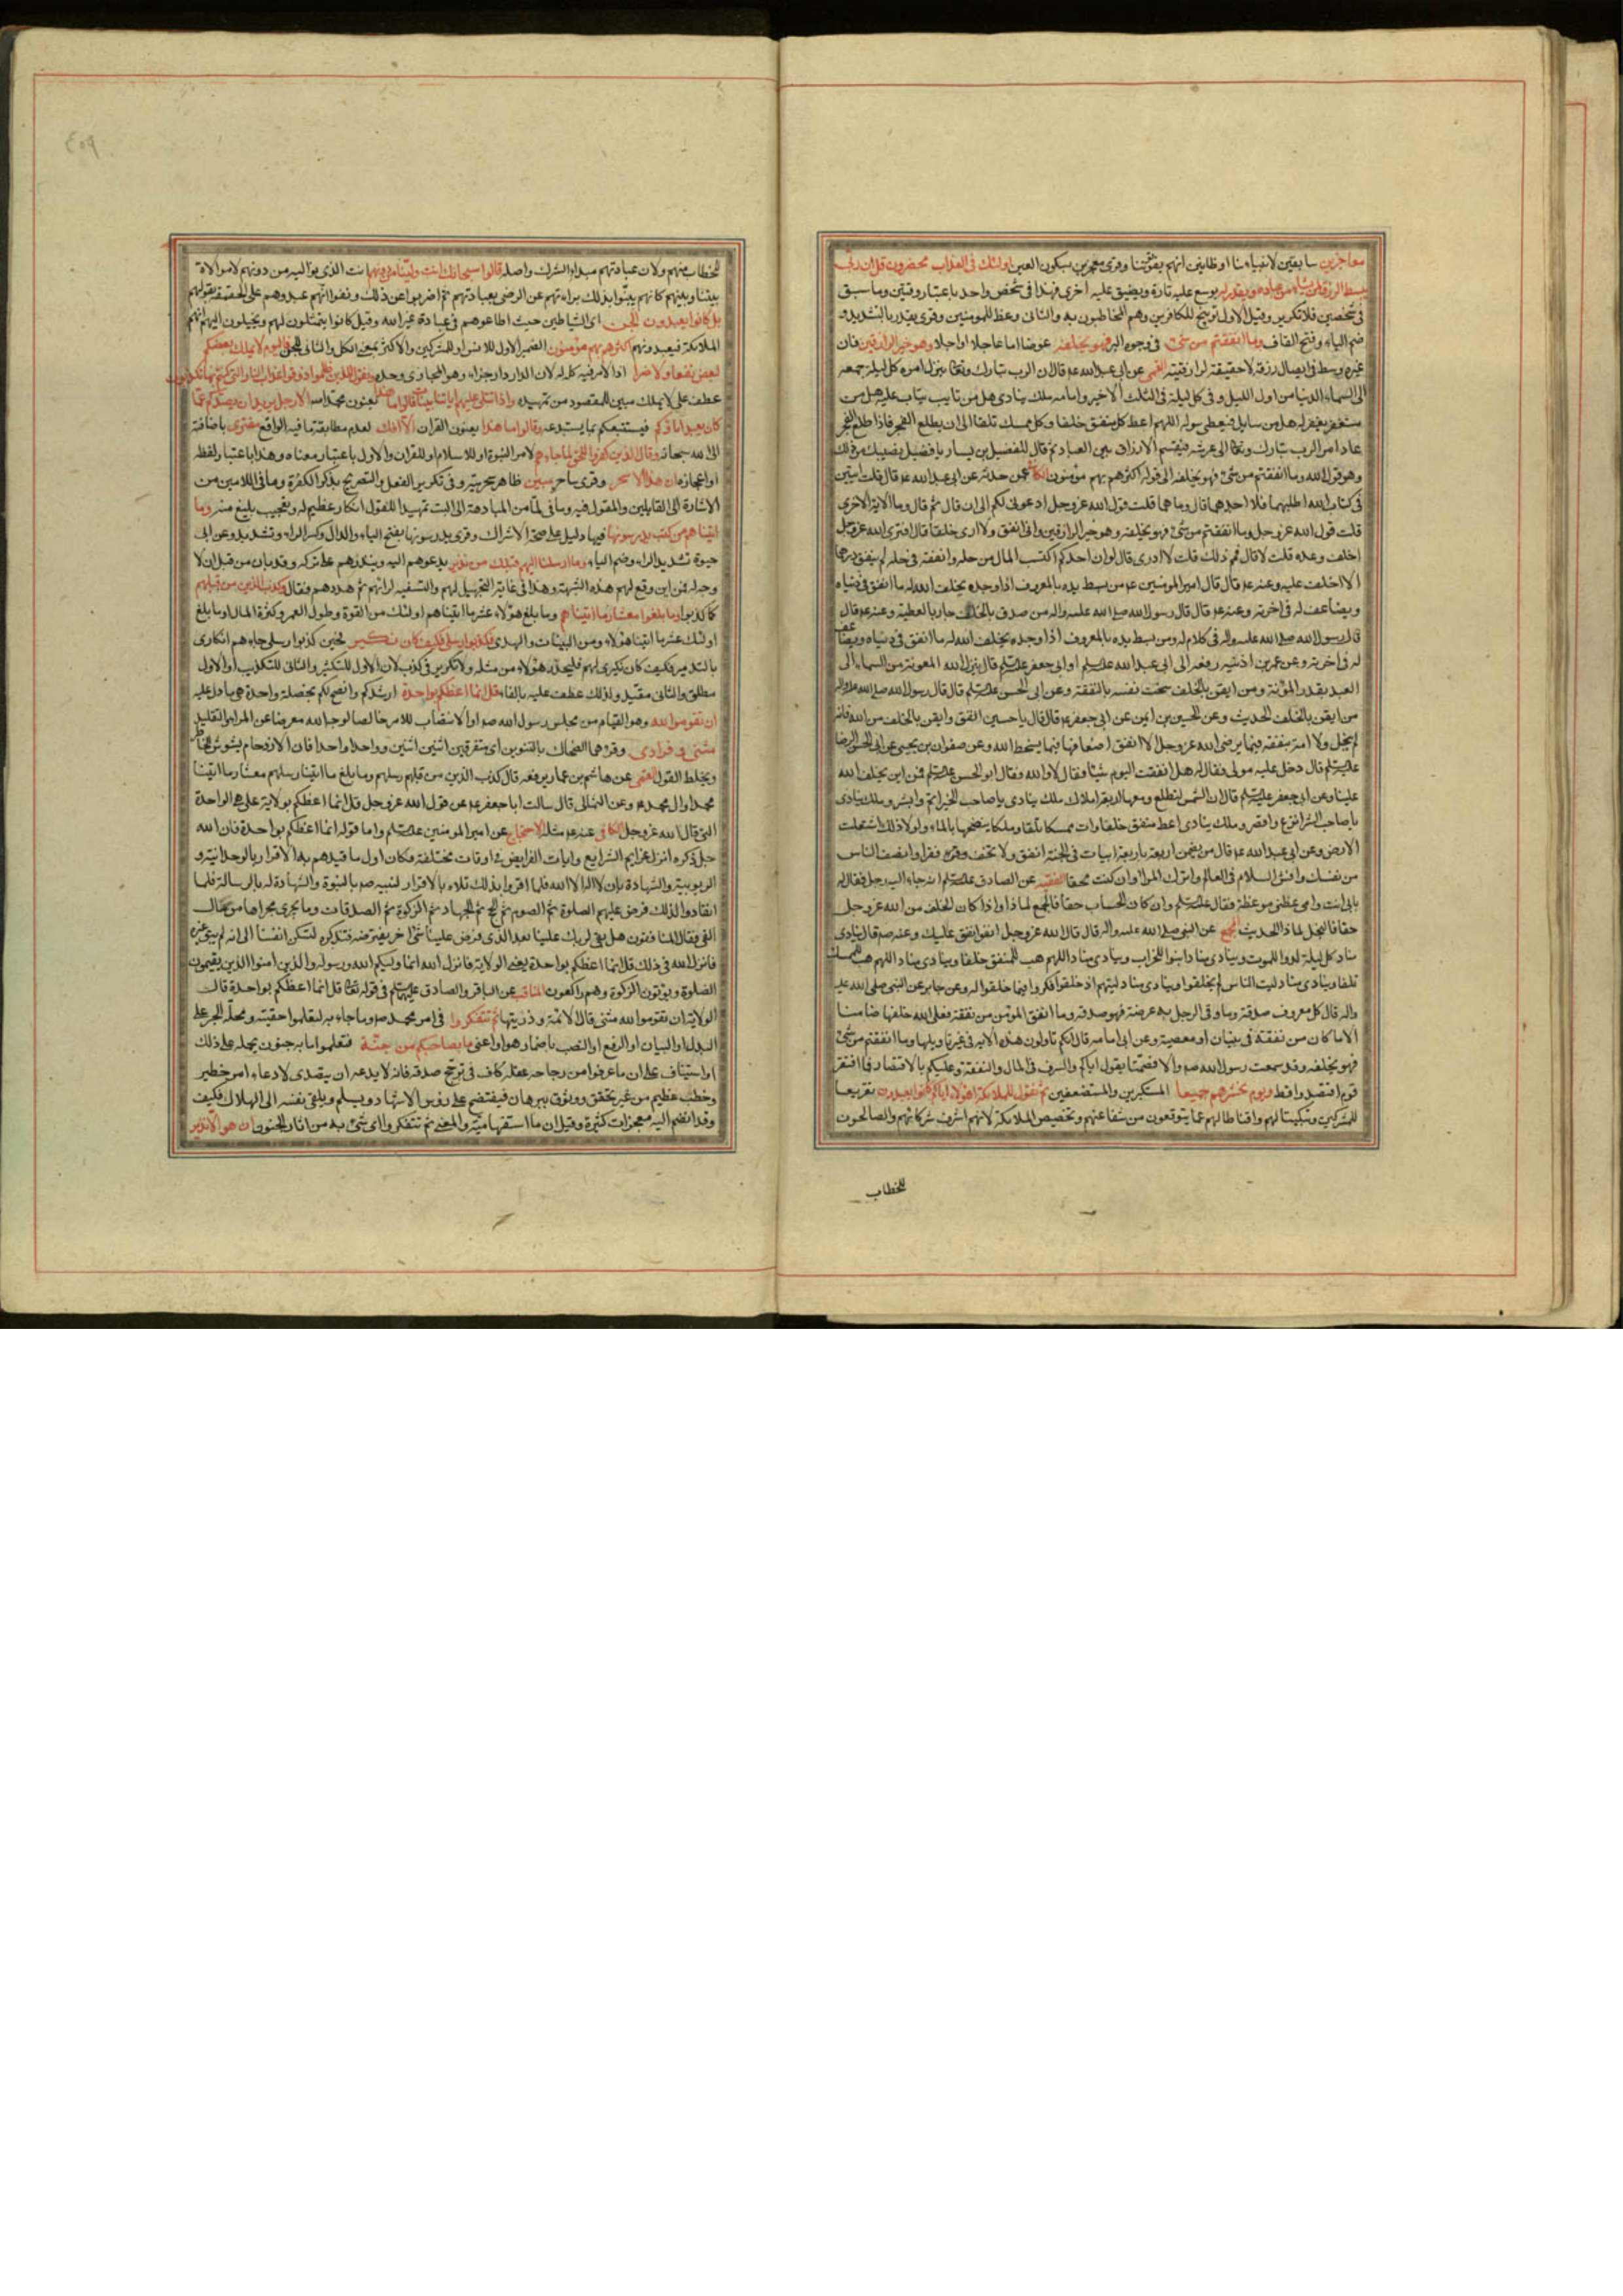 معاجزين سابقين لانبيائنا او ظانين انهم يفوّتوننا وقرئ معجزين بسكون العين اولئك في العذاب محضرون قل ان ربي
يبسط الرزق لمن يشاء من عباده ويقدر له يوسع عليه تارة ويضيق عليه اخرى فهذا في شخص واحد باعتبار وقتين وما سبق
في شخصين فلا تكرير وقيل الاول توبيخ للكافرين وهم المخاطبون به والثاني وعظ للمومنين وقرئ يقدر بالتشديد و
ضم الياء وفتح القاف وما انفقتم من شئ في وجوه البر فهو يخلفه عوضا اما عاجلا او اجلا وهو خير الرازقين فان
غيره وسط في ايصال رزقه لا حقيقة لرازقيته القمي عن ابي عبدالله ع قال ان الرب تبارك وتعالى ينزل امره كل ليلة جمعه
الى السماء الدنيا من اول الليل وفي كل ليلة في الثلث الاخير وامامه ملك ينادي هل من تايب يتاب عليه هل من
مستغفر يغفر له هل من سايل فيعطى سوله اللهم اعط كل منفق خلفا وكل ممسك تلفا الى ان يطلع الفجر فاذا طلع الفجر
عاد امر الرب تبارك وتعالى الى عرشه فيقسم الارزاق بين العباد ثم قال للفضيل بن يسار يا فضيل نصيبك من ذلك
وهو قول الله وما انفقتم من شئ فهو يخلفه الى قوله اكثرهم بهم مؤمنون الكافي عمن حدثه عن ابي عبدالله ع قال قلت ايتين
في كتاب الله اطلبهما فلا اجدهما قال وما هما قلت قول الله عز وجل ادعوني لكم الى ان قال ثم قال وما الاية الاخرى
قلت قول الله عز وجل وما انفقتم من شئ فهو يخلفه وهو خير الرازقين واني انفق ولا ارى خلفا قال افترى الله عز وجل
اخلف وعده قلت لا قال فمم ذلك قلت لا ادري قال لو ان احدكم اكتسب المال من حله وانفقه في حله لم ينفق درهما
الا اخلف عليه وعنه ع قال قال امير المومنين ع من بسط يده بالمعروف اذا وجده يخلف الله له ما انفق في دنياه
ويضاعف له في اخرته وعنه ع قال قال رسول الله صلى الله عليه واله من صدق بالخلف جاد بالعطية وعنه ع قال
قال رسول الله صلى الله عليه واله في كلام له ومن بسط يده بالمعروف اذا وجده يخلف الله له ما انفق في دنياه ويضاعف
له في اخرته وعن عمر بن اذينه رفعه الى ابي عبدالله عليه السلام او ابي جعفر عليه السلام قال ينزل الله المعونة من السماء الى
العبد بقدر المؤنة ومن ايقن بالخلف سخت نفسه بالنفقة وعن ابي الحسن عليه السلام قال قال رسول الله صلى الله عليه واله
من ايقن بالخلف الحديث وعن الحسين بن ايمن عن ابي جعفر ع قال قال يا حسين انفق وايقن بالخلف من الله فانه
لم يبخل ولا امة بنفقة فيما يرضي الله عز وجل الا انفق اضعافها فيما يسخط الله وعن صفوان بن يحيى عن ابي الحسن الرضا
عليه السلام قال دخل عليه مولى فقال له هل انفقت اليوم شيئا فقال لا والله فقال ابو الحسن عليه السلام فمن اين يخلف الله
علينا وعن ابي جعفر عليه السلام قال ان الشمس لتطلع ومعها اربعة املاك ملك ينادي يا صاحب الخير اتم وابشر وملك ينادي
يا صاحب الشر انزع واقصر وملك ينادي اعط منفق خلفا وات ممسكا تلفا وملك ينضحها بالماء ولولا ذلك اشتعلت
الارض وعن ابي عبد الله ع قال من يضمن اربعة باربعة ابيات في الجنة انفق ولا تخف وفرء فقرا وانصف الناس
من نفسك وافش السلام في العالم واترك المراء وان كنت محقا الفقيه عن الصادق عليه السلام انه جاء اليه رجل فقال له
بابي انت وامي عظني موعظة فقال عليه السلام وان كان الحساب حقا فالجمع لماذا واذا كان الخلف من الله عز وجل
حقا فالبخل لماذا الحديث المجمع عن النبي صلى الله عليه واله قال قال الله عز وجل انفق انفق عليك وعنه ص قال ينادي
مناد كل ليلة لدوا للموت وينادي مناد ابنوا للخراب وينادي مناد اللهم هب للمنفق خلفا وينادي مناد اللهم هب للممسك
تلفا وينادي مناد ليت الناس لم يخلقوا وينادي مناد ليتهم اذ خلقوا فكروا فيما خلقوا له وعن جابر عن النبي صلى الله عليه
واله قال كل معروف صدقة وما وقى الرجل به عرضه فهو صدقه وما انفق المومن من نفقة فعلى الله خلفها ضامنا
الا ما كان من نفقة في بنيان او معصية وعن ابي امامه قال انكم تاولون هذه الاية في غير تاويلها وما انفقتم من شئ
فهو يخلفه وقد سمعت رسول الله ص والا فصمتا يقول اياكم والسرف في المال والنفقة وعليكم بالاقتصاد فما افتقر
قوم اقتصدوا قط ويوم نحشرهم جميعا المستكبرين والمستضعفين ثم نقول للملائكة اهؤلاء اياكم كانوا يعبدون تقريعا
للمشركين وتبكيتا لهم واقناطا لهم عما يتوقعون من شفاعتهم وتخصيص الملائكة لانهم اشرف شركائهم والصالحون
للخطاب
٤٥٩
للخطاب منهم ولان عبادتهم مبداء الشرك واصله قالوا سبحانك انت ولينا من دونهم انت الذي نواليه من دونهم لا موالاة
بيننا وبينهم كانهم بينوا بذلك براءتهم عن الرضى بعبادتهم ثم اضربوا عن ذلك ونفوا انهم عبدوهم على الحقيقة بقولهم
بل كانوا يعبدون الجن اي الشياطين حيث اطاعوهم في عبادة غير الله وقيل كانوا يتمثلون لهم ويخيلون اليهم انهم
الملائكة فيعبدونهم اكثرهم بهم مؤمنون الضمير الاول للانس او للمشركين والاكثر بمعنى الكل والثاني للجن فاليوم لا يملك بعضكم
لبعض نفعا ولا ضرا اذ الامر فيه كله له لان الدار دار جزاء وهو المجازي وحده ونقول للذين ظلموا ذوقوا عذاب النار التي كنتم بها تكذبون
عطف على لا يملك مبين للمقصود من تمهيده واذا تتلى عليهم اياتنا بينات قالوا ما هذا يعنون محمدا ص الا رجل يريد ان يصدكم عما
كان يعبد اباؤكم فيستتبعكم بما يستبدعه وقالوا ما هذا يعنون القران الا افك لعدم مطابقة ما فيه الواقع مفترى باضافته
الى الله سبحانه وقال الذين كفروا للحق لما جاءهم لامر النبوة او للاسلام او للقران والاول باعتبار معناه وهذا باعتبار لفظه
او اعجازه ان هذا الا سحر وقرئ ساحر مبين ظاهر سحريته وفي تكرير الفعل والتصريح بذكر الكفرة وما في اللامين من
الاشارة الى القايلين والمقول فيه وما في لما من المبادهة الى البت تمهيدا للقول انكار عظيم له وتعجيب بليغ منه وما
اتيناهم من كتب يدرسونها فيها دليل على صحة الاشراك وقرئ يدرسونها بفتح الياء والدال وكسر الراء وتشديد وعن ابي
حيوة تشديد الراء وضم الياء وما ارسلنا اليهم قبلك من نذير يدعوهم اليه وينذرهم على تركه وقد بان من قبل ان لا
وجه له فمن اين وقع لهم هذه الشبهة وهذا في غاية التجهيل لهم والتسفيه لرايهم ثم هددهم فقال وكذب الذين من قبلهم
كما كذبوا وما بلغوا معشار ما اتيناهم وما بلغ هؤلاء عشر ما اتيناهم اولئك من القوة وطول العمر وكثرة المال او ما بلغ
اولئك عشر ما اتينا هؤلاء ومن البينات والهدى فكذبوا رسلي فكيف كان نكير فحين كذبوا رسلي جاءهم انكاري
بالتدمير فكيف كان نكيري لهم فليحذر هؤلاء من مثله ولا تكرير في كذب لان الاول للتكثير والثاني للتكذيب او الاول
مطلق والثاني مقيد ولذلك عطف عليه بالفاء قل انما اعظكم بواحدة ارشدكم وانصح لكم بخصلة واحدة هي ما دل عليه
ان تقوموا لله وهو القيام من مجلس رسول الله ص او الانتصاب للامر خالصا لوجه الله معرضا عن المراء والتقليد
مثنى وفرادى وقرءهما الضحاك بالتنوين اي متفرقين اثنين اثنين وواحدا واحدا فان الازدحام يشوش الخاطر
ويخلط القول القمي عن هاشم بن عمار يرفعه قال كذب الذين من قبلهم رسلهم وما بلغ ما اتينا رسلهم معشار ما اتينا
محمدا وال محمد ع وعن الثمالي قال سالت ابا جعفر ع عن قول الله عز وجل قل انما اعظكم بولاية علي هي الواحدة
التي قال الله عز وجل الكافي عنه ع مثله الاحتجاج عن امير المومنين عليه السلام واما قوله انما اعظكم بواحدة فان الله
جل ذكره انزل عزايم الشرايع وايات الفرايض في اوقات مختلفة فكان اول ما قيدهم به الاقرار بالوحدانية و
الربوبية والشهادة بان لا اله الا الله فلما اقروا بذلك تلاه بالاقرار لنبيه ص بالنبوة والشهادة له بالرسالة فلما
انقادوا لذلك فرض عليهم الصلوة ثم الصوم ثم الحج ثم الجهاد ثم الزكوة ثم الصدقات وما يجري مجراها من مال
الفئ فقال المنافقون هل بقي لربك علينا بعد الذي فرض علينا شئ اخر يفترضه فتذكره لتسكن انفسنا الى انه لم يبق غيره
فانزل الله في ذلك قل انما اعظكم بواحدة يعني الولاية فانزل الله انما وليكم الله ورسوله والذين امنوا الذين يقيمون
الصلوة ويؤتون الزكوة وهم راكعون المناقب عن الباقر والصادق عليهما السلام في قوله تعالى قل انما اعظكم بواحدة قال
الولاية ان تقوموا لله مثنى قال الائمة و ذريتهما ثم تتفكروا في امر محمد ص وما جاء به لتعلموا حقيته ومحله الجر على
البدل او البيان او الرفع او النصب باضمار هو او اعني ما بصاحبكم من جنة فتعلموا ما به جنون يحمله على ذلك
او استيناف على ان ما عرفوا من رجاحه عقله كاف في ترجيح صدقه فانه لا يدعه ان يتصدى لادعاء امر خطير
وخطب عظيم من غير تحقق ووثوق ببرهان فيفتضح على رؤس الاشهاد ويسلم ويلقي نفسه الى الهلاك فكيف
وقد انضم اليه معجزات كثيرة وقيل ان ما استفهامية والمعنى ثم تتفكروا اي شئ به من اثار الجنون ان هو الا نذير